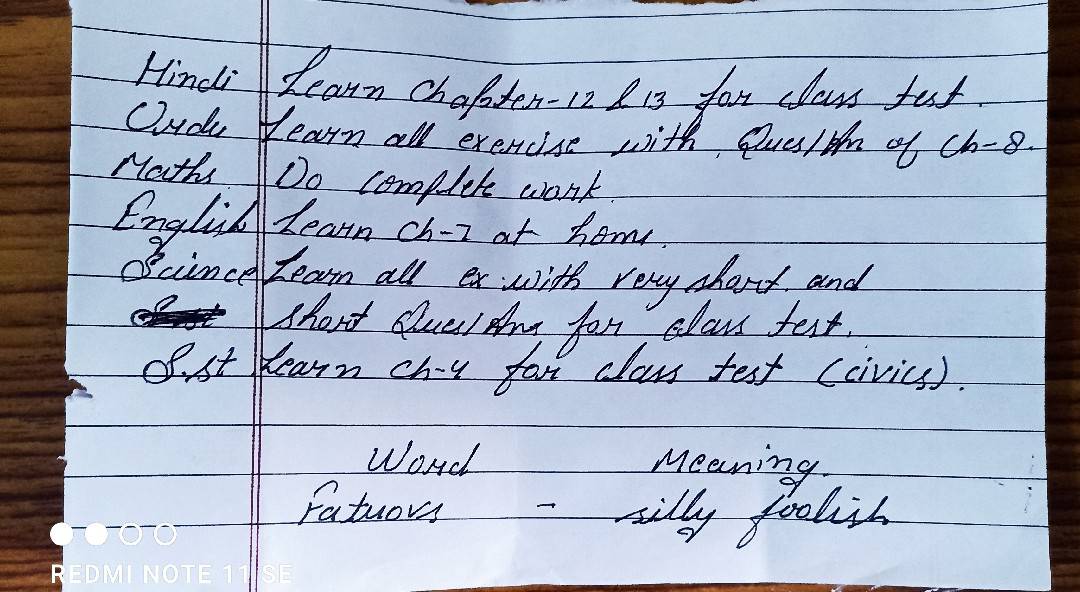 Hindi Learn Chapter-12 & 13 for class test.
Urdu Learn all exercise with Ques/Ans of Ch-8.
Maths. Do complete work.
English Learn Ch-7 at home.
Science Learn all ex. with very short. and
short Ques/Ans for class test.
S.st Learn Ch-4 for class test (civics).
Word Meaning.
Fatuovs - silly foolish
REDMI NOTE 11 SE